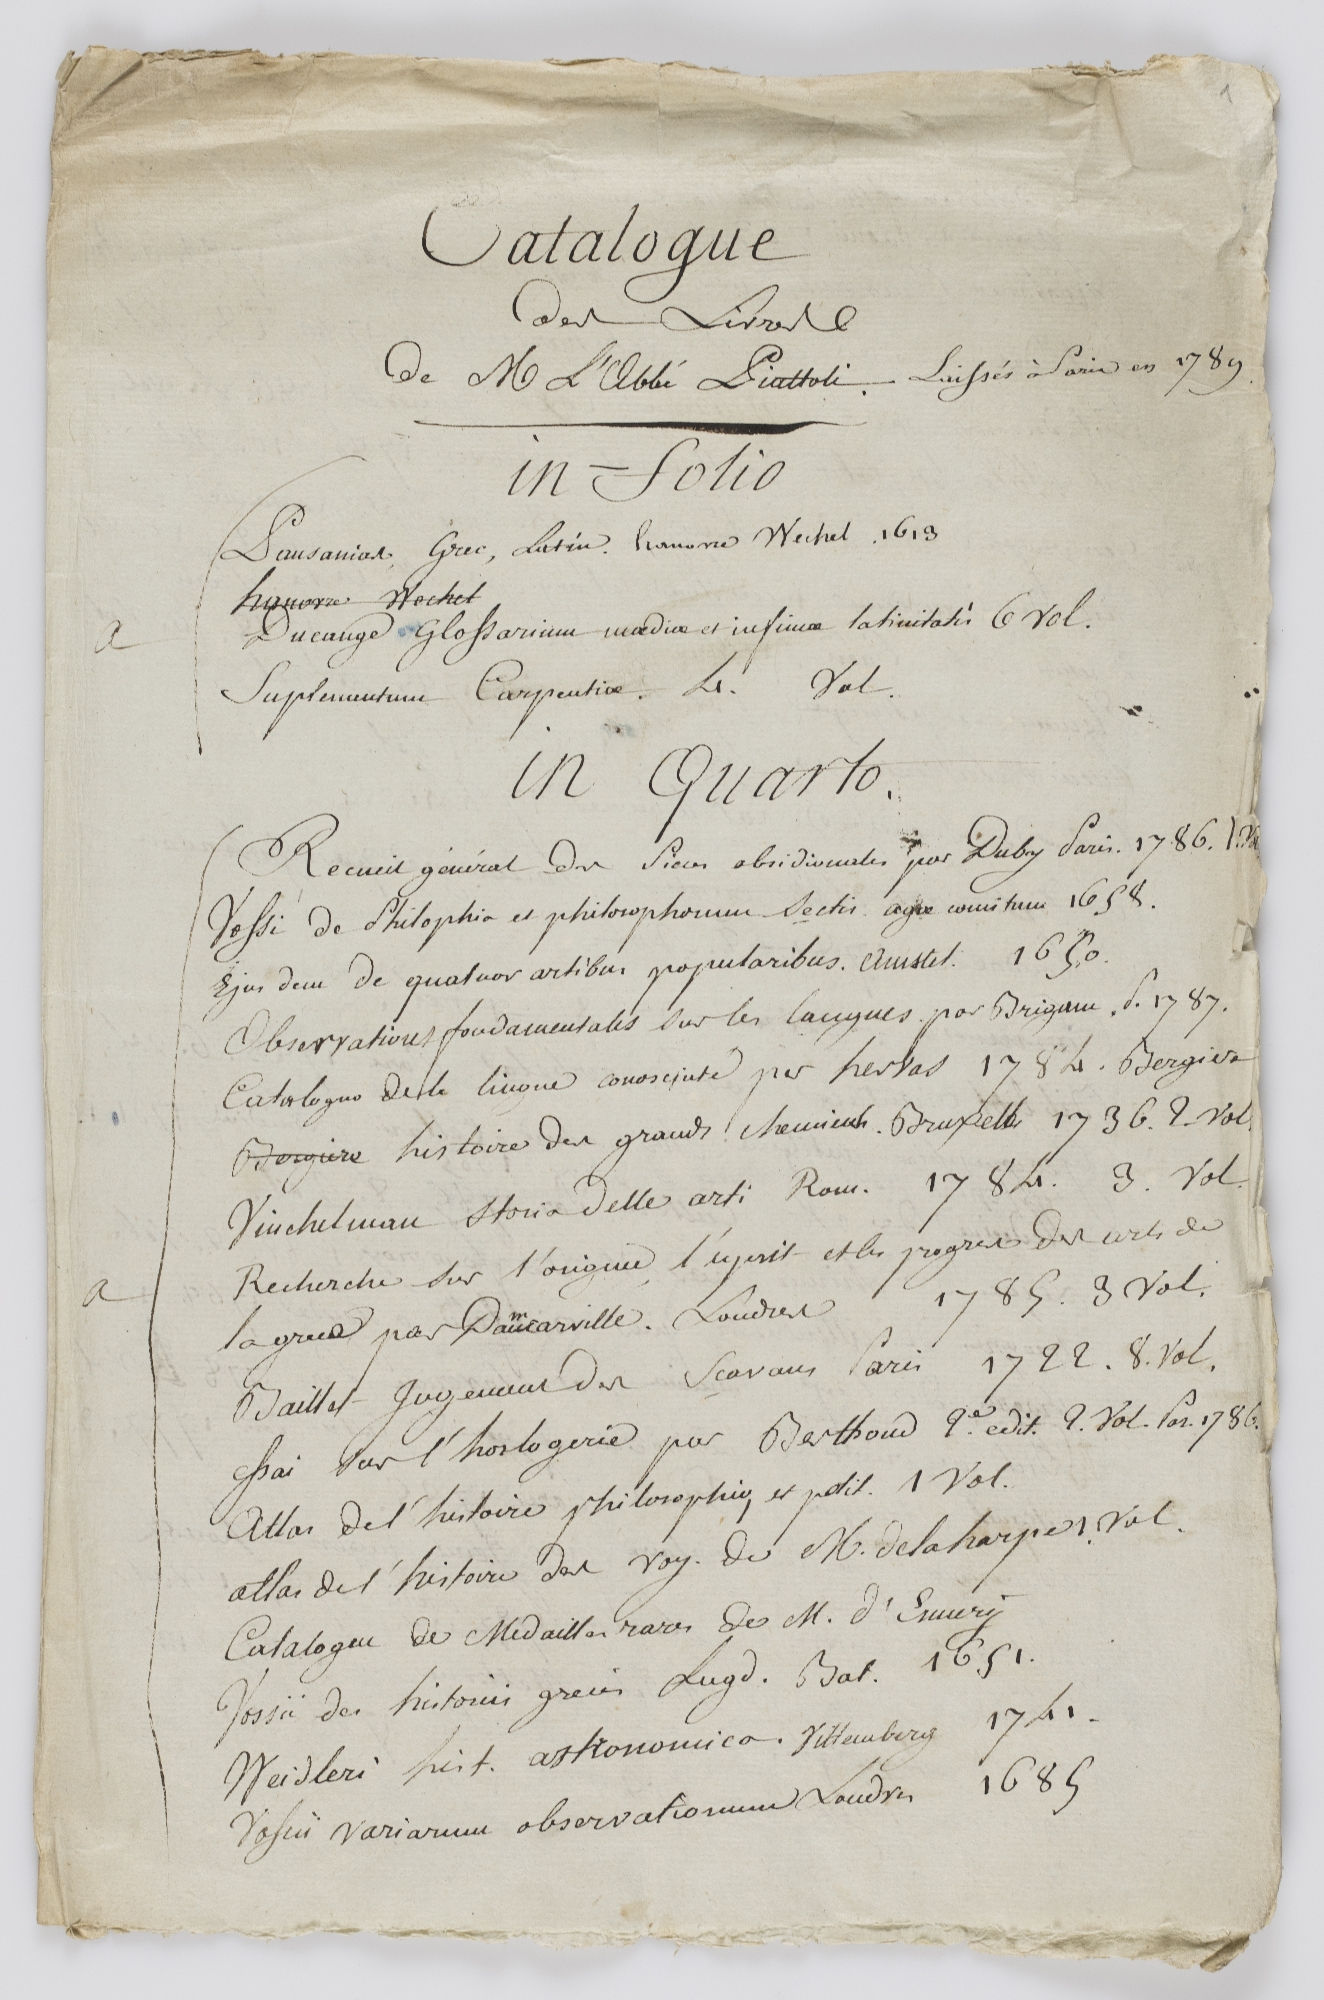 1
Catalogue
des Livres
de M L'Abbé Piattoli. Laissés à Paris en 1789.
in-folio
Pausanias, Grec, Latin. hanovre Wechel. 1613
hanovre Wechel
a
Ducange Glossarium mediæ et infimæ latinitatis 6 Vol.
Suplementum Carpentiæ. 4. Vol.
in Quarto.
Recueil géneral des Pieces obsidionales par Duby Paris. 1786. 1. Vol
Vossi de Philophia et philosophorum sectis agæ comitum 1658.
Ejusdem de quatuor artibus popularibus. Amstel. 1650.
Observations fondamentales sur les langues par Brigam. P. 1787.
Catalogno delle lingue conosciute per hervas 1784. Bergier
Bergiere histoire des grands chemins. Bruxelles 1736. 2. Vol.
Vinchelman storia delle arti Rom. 1784. 3. Vol.
Recherche sur l'origine, l'esprit et les progres des arts de
a
la grece par Dancarville. Londres 1785. 3 Vol.
Baillet Jugement des Scavans Paris 1722. 8. Vol.
essai sur l'horlogerie par Berthoud 2.e edit. 2. Vol. Par. 1786.
Atlas de l'histoire philosophiq et polit. 1 Vol.
atlas de l'histoire des voy. de M. delaharpe 1. Vol.
Catalogue de Medailles rares de M. d'Ennery
Vossii des historiis grecis Lugd. Bat. 1651.
Weidleri hist. astronomica. Vittemberg 1741.
Vossii variarum observationum Londres 1685